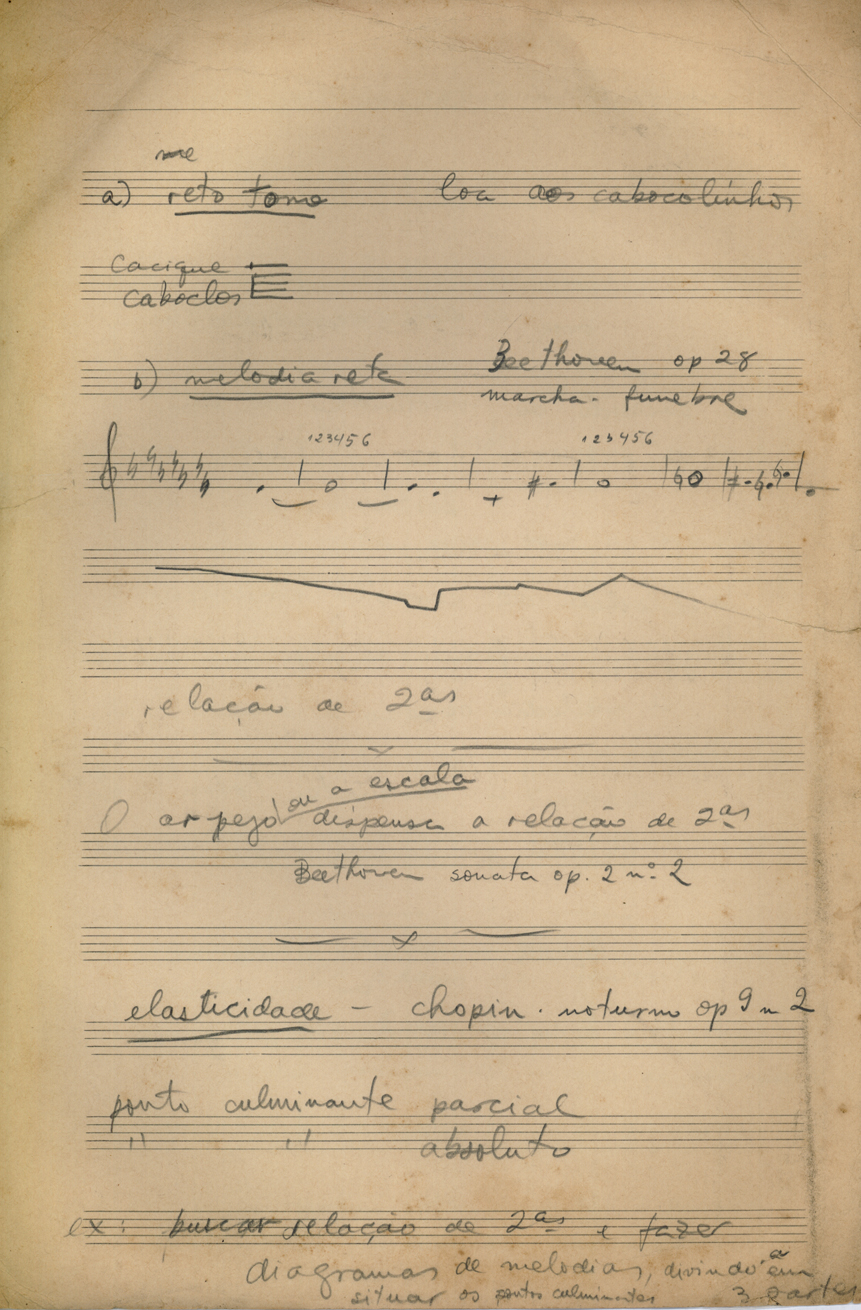 me
a) reto tono loa aos cabocolinhos
Cacique
Caboclos
b) melodia reta Beethoven op 28
marcha - funebre
123456 123456
relação de 2as
ou a escala
O arpejo dispensa a relação de 2as
Beethoven sonata op. 2 nº 2
elasticidade - chopin - noturno op 9 n 2
ponto culminante parcial
" " absoluto
ex: buscar relação de 2as e fazer
diagramas de melodias, dividí-a em
situar os pontos culminantes 3 partes